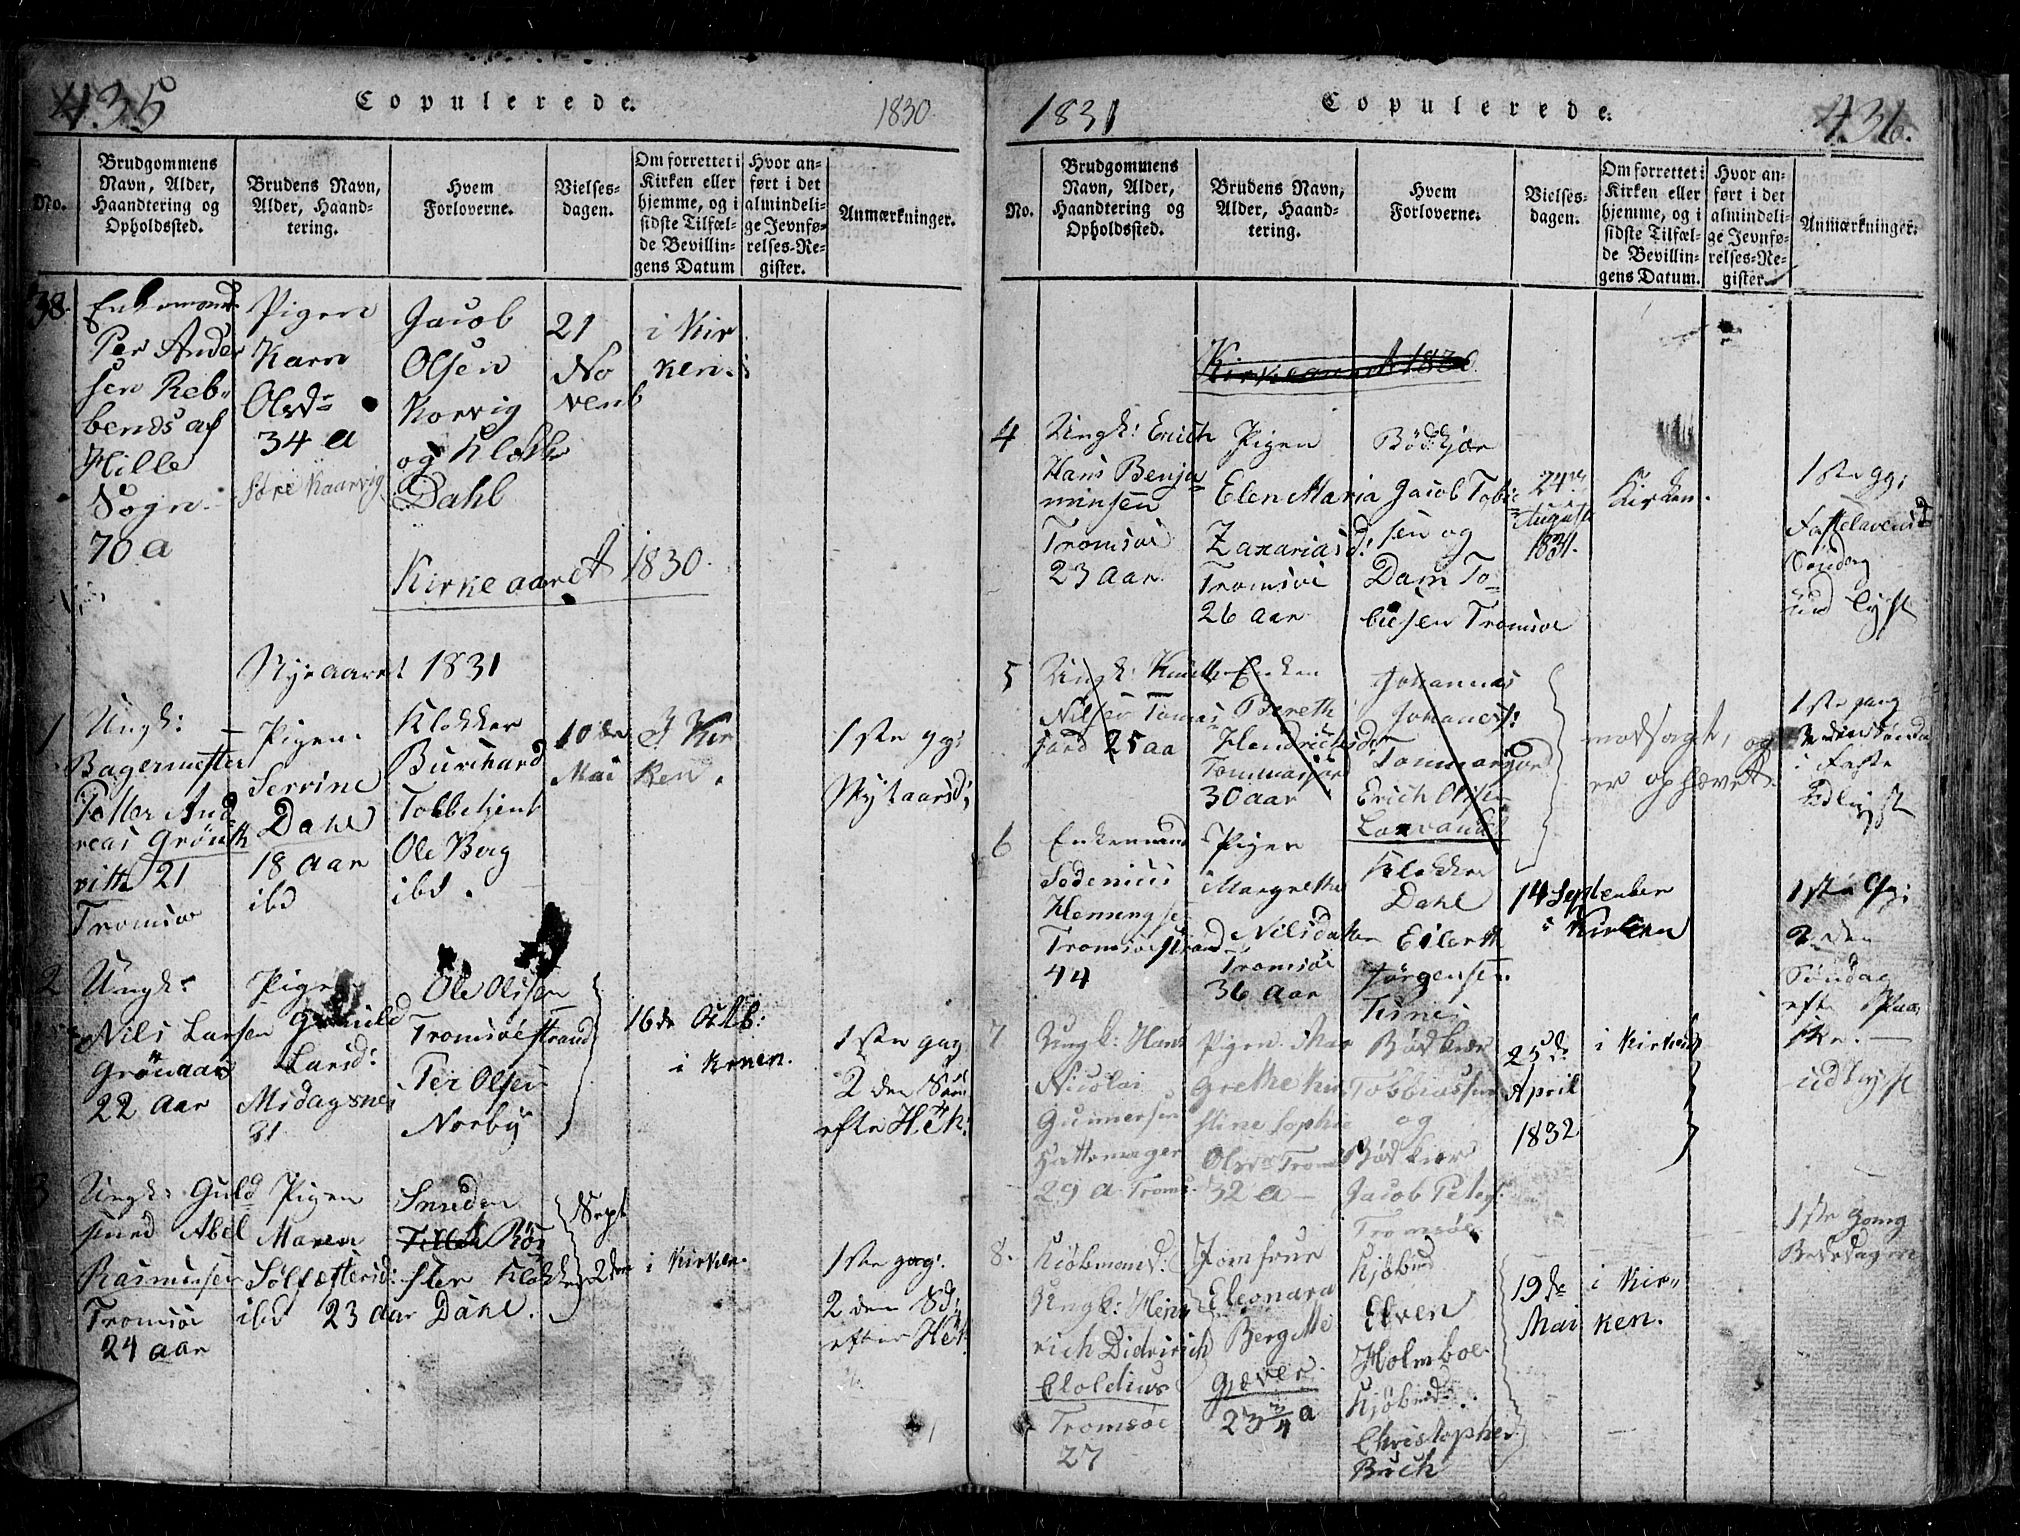 435
Copulerede.
1830
No.
Brudgommens
Navn, Alder,
Haandtering og
Opholdssted.
Brudens Navn,
Alder, Haand-
tering.
Hvem
Forloverne.
Vielses-
dagen.
Om forrettet i
Kirken eller
hjemme, og i
sidste Tilfæl-
de Bevillin-
gens Datum
Hvor an-
ført i det
almindeli-
ge Jevnfø-
relses-Re-
gister.
Anmærkninger.
38.
Enkemand
Per Ander
sen Reb-
bends af
Hille
Sogn
70 a
Pigen
Karn
Olsd
34 a
Kaarvig
Jacob
Olsen
Korvig
og Klokk
Dahl
21
No
venb
i Kir
ken.
Kirkeaaret 1830.
Nyeaaret 1831
1
Ungk:
Bagermester
Peter And
reas Grönth
vith 21
Tromsöe
Pigen
Serrine
Dahl
18 aar
ibd
Klokker
Burchard
Tobbetient
Ole Berg
ibd.
10de
Mai
I Kir
ken.
1ste gg:
Nytaarsd:
2
Ungk:
Nils Larsen
Grönaas
22 Aar
Pigen
Gunild
Larsd:
Midagsnes
31
Ole Olsen
Tromsöestrand
Per Olsen
Norby
16de Octb:
i Kirken.
1ste gag
2den Sønd
efter H: 3 K:
3
Ungk: Guld
smed Abel
Rasmusen
Tromsöe
24 aar
Pigen
Maren
Sølfæstersd:
ibd 23 aar
Smeden
Röi
ster Klokker
Dahl.
Sept
2den
i Kirken.
1ste gag:
2den Sd:
efter H3K:
1831
Copulerede.
436.
No.
Brudgommens
Navn, Alder,
Haandtering og
Opholdssted.
Brudens Navn,
Alder, Haand-
tering.
Hvem
Forloverne.
Vielses-
dagen.
Om forrettet i
Kirken eller
hjemme, og i
sidste Tilfæl-
de Bevillin-
gens Datum.
Hvor an-
ført i det
almindeli-
ge Jevnfø-
relses-Re-
gister.
Anmærkninger.
Kirkeaaret 1830
4
Ungk: Erich
Hans Benja-
minsen
Tromsöe
23 Aar.
Pigen
Elen Maria
Zaxariasd:
Tromsöe
26 Aar
Bödkjær
Jacob Tobie
sen og
Dam To-
biesen Tromsöe
24de
August
1831.
Kirken.
1ste gg:
Fastelavens
Söndag
ud lyst
5
Ungk: Knutt
Nilsen Tomas
jord 25 aa
Enken
Bereth
Hendrichsdr
Tommasjor
30 aar
Johannas
Johanes:
Tommasjord
Erich Olsen
Laxvand
modsagt, og
er ophævet.
1ste gang
3den Sönda
i Faste
Udlyst
6
Enkemand
Sedenius
Hemmingse
Tromsöestrand
44
Pigen
Margrethe
Nilsdatter
Tromsöe
36 aar
Klokker
Dahl
Eilerth
Jörgensen.
Tisnes
14 September
i Kirken
1ste Gg:
2den
Söndag
efter Paa
ske.
udlyst
7
Ungk: Hans
Nicolai
Gunnersen
Hattemager
29 A. Troms
Pigen Mar
Grethe Kir
stine Sophie
Olsd Troms
32 a
Bödkier
Tobbiassen
og
Bödkier
Jacob Peters:
Tromsöe
25de
April
1832
i Kirken
8.
Kiöbmand:
Ungk: Hein
rich Didririch
Cloldius
Tromsöe
27
Jomfrue
Eleonara
Bergitte
Gjæver
23 3/4 a
Kjöbmd
Elven
Holmboe
Kjöbmd:
Christopher
Buch
19de
Mai
i Kir-
ken.
1ste gang
Bededagen